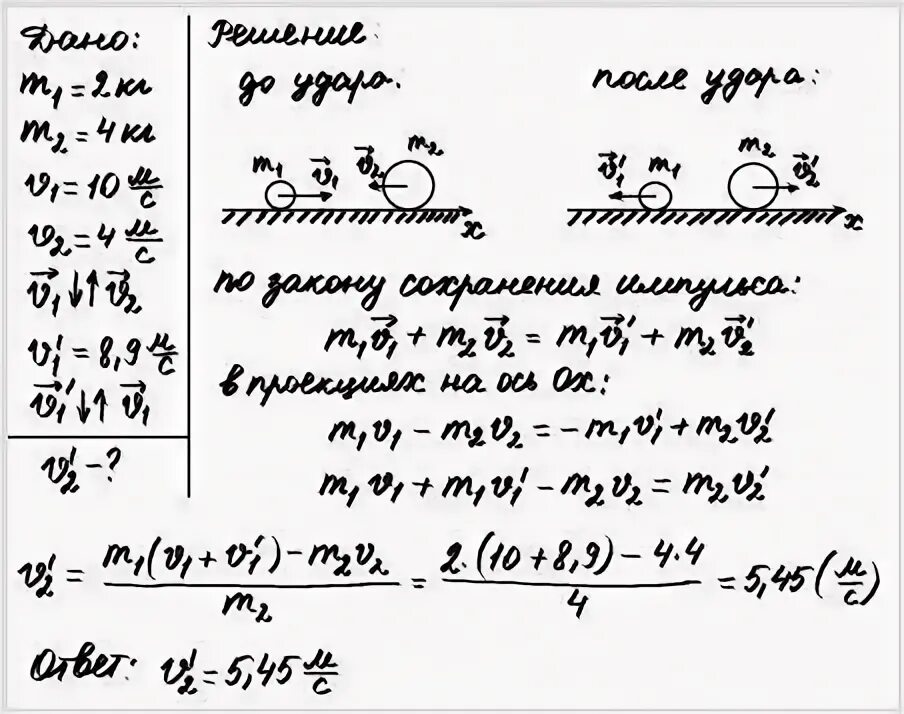 Дано:
m₁ = 2 кг
m₂ = 4 кг
v₁ = 10 м/с
v₂ = 4 м/с
v⃗₁ ↓↑ v⃗₂
v₁' = 8,9 м/с
v⃗₁' ↓↑ v⃗₁
v₂' – ?
Решение:
до удара.
m₁ v⃗₁ v⃗₂ m₂
x
после удара:
v⃗₁' m₁ m₂ v⃗₂'
x
по закону сохранения импульса:
m₁v⃗₁ + m₂v⃗₂ = m₁v⃗₁' + m₂v⃗₂'
в проекциях на ось Ox:
m₁v₁ – m₂v₂ = –m₁v₁' + m₂v₂'
m₁v₁ + m₁v₁' – m₂v₂ = m₂v₂'
v₂' = (m₁(v₁ + v₁') – m₂v₂)/m₂ = (2·(10 + 8,9) – 4·4)/4 = 5,45 (м/с)
Ответ: v₂' = 5,45 м/с